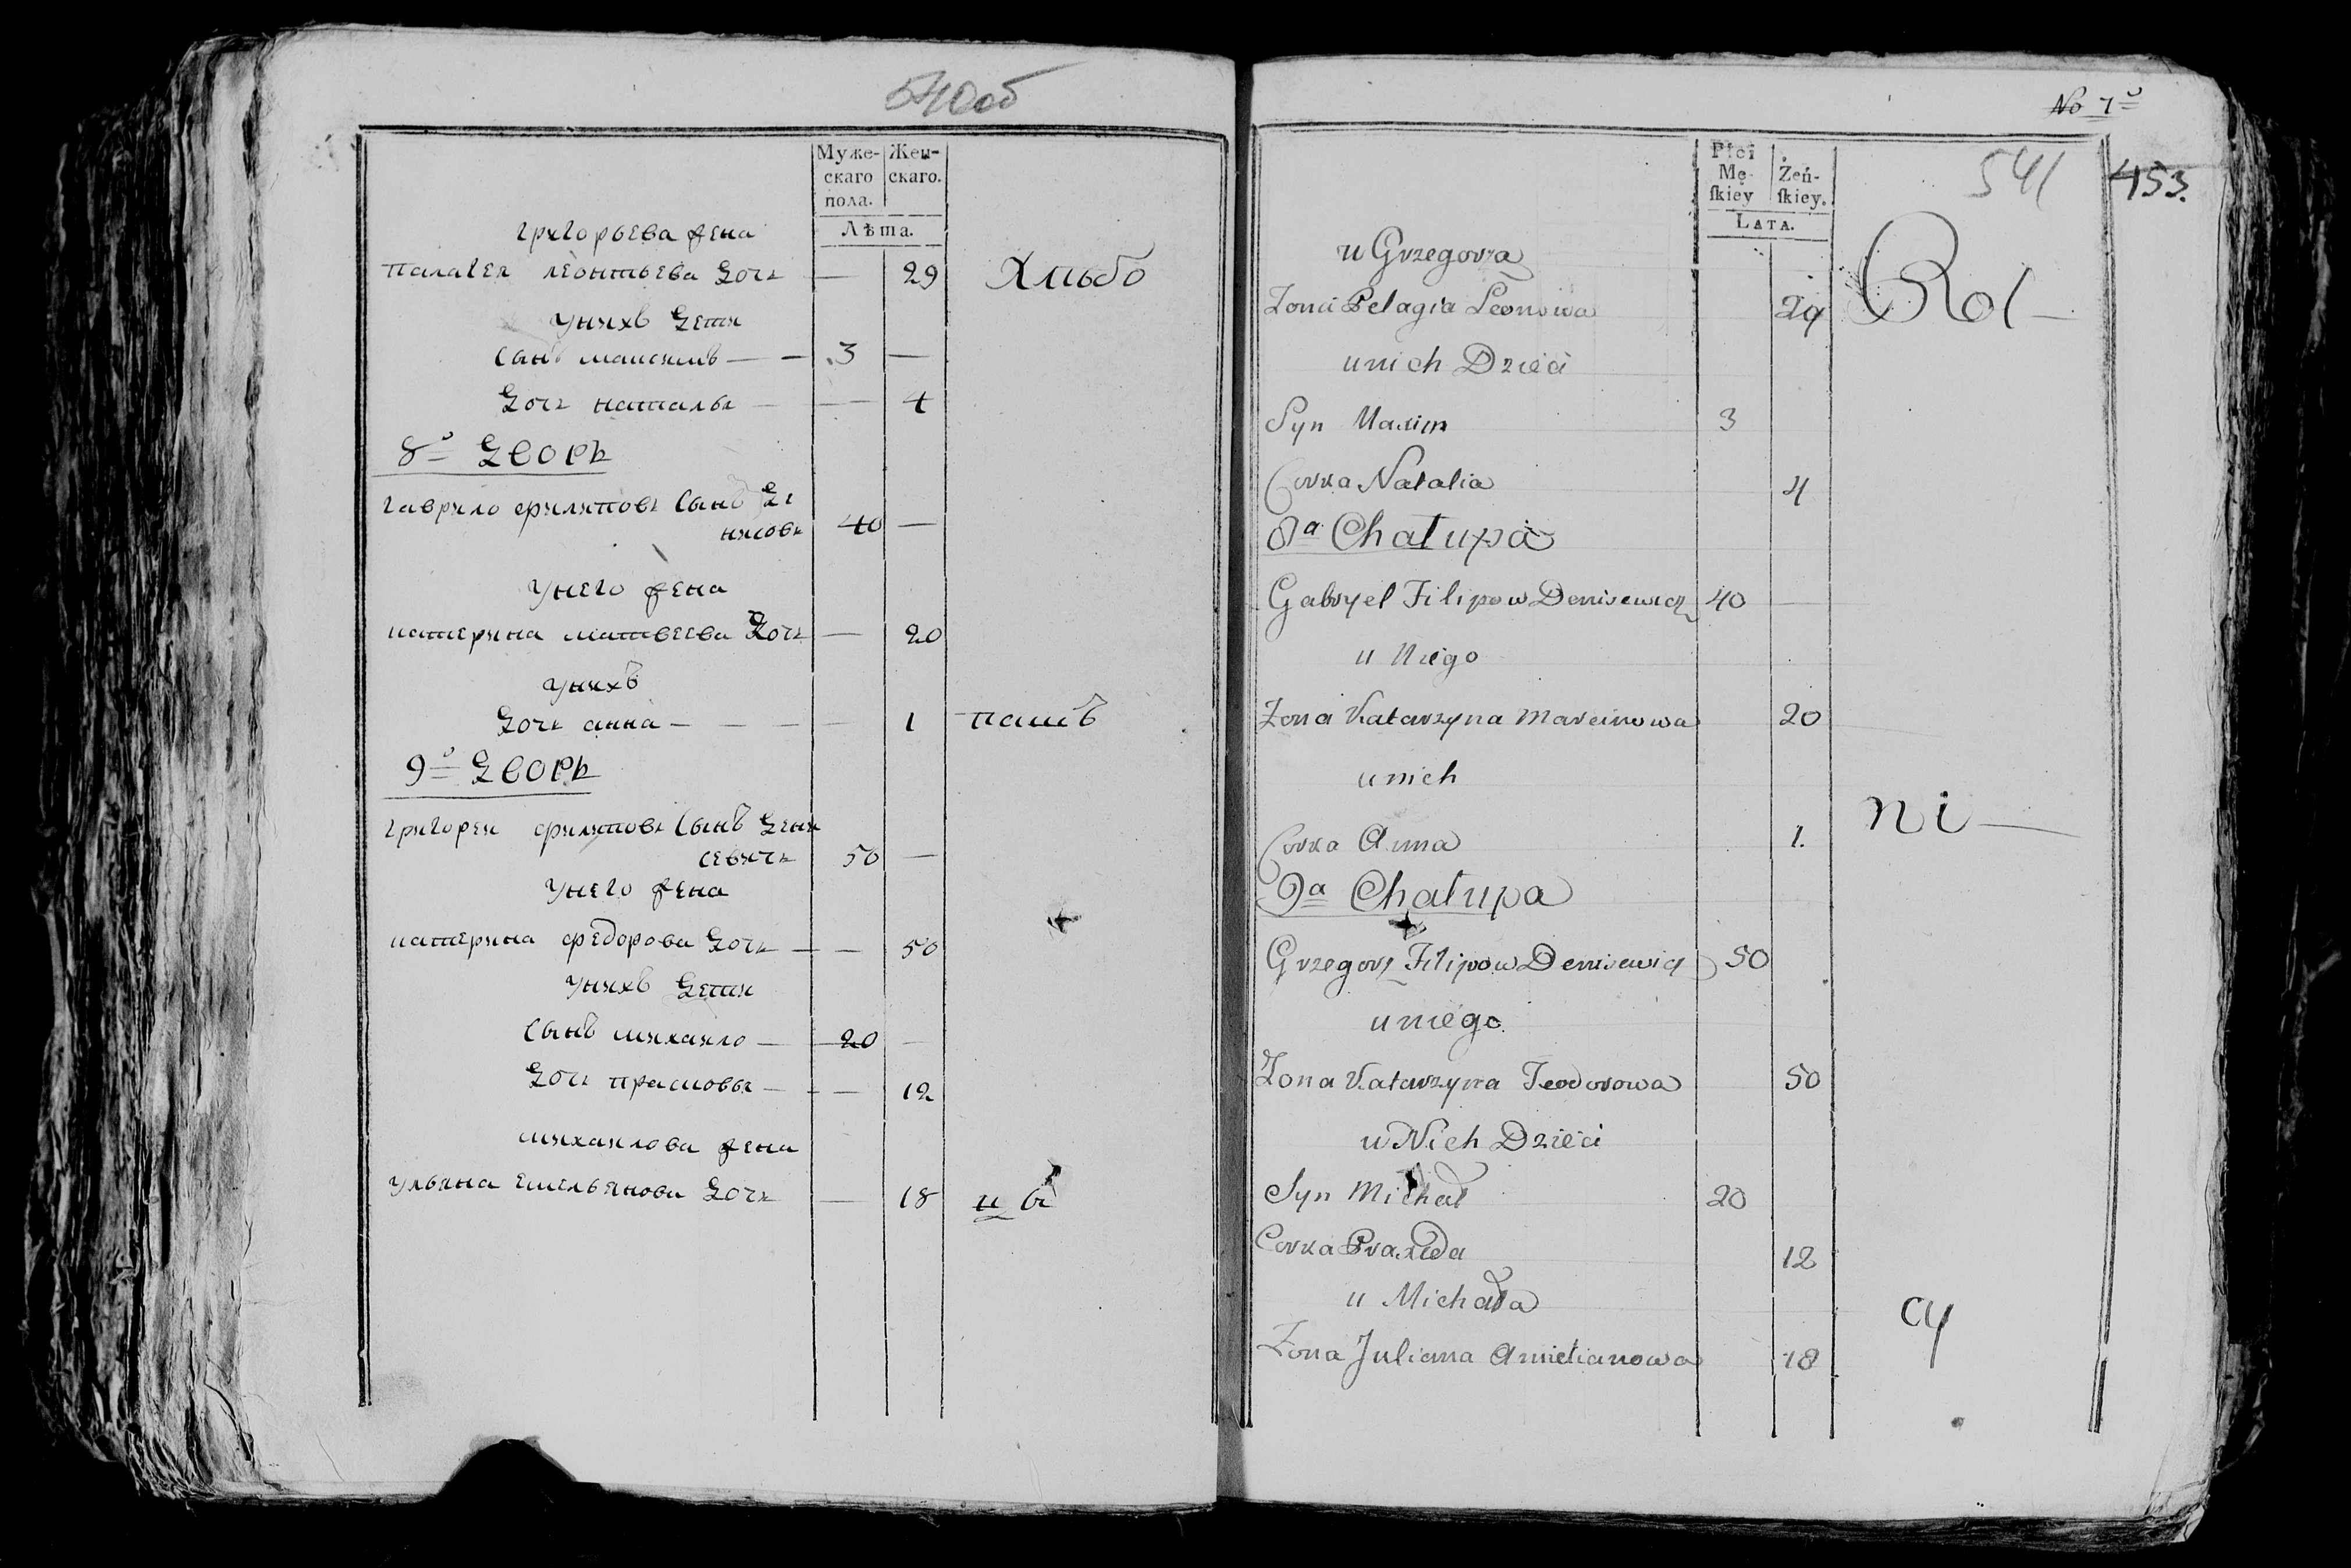 540об
Муже-
скаго
пола.
Жен-
скаго.
Лѣта.
григорьева жена
палагея леонтьева дочь — 29 Хлѣбо
унихъ дети
сынъ максимъ — — 3 —
дочь наталья — — 4
8й дворъ
гаврило филиповъ сынъ де
нисовъ 40 —
унего жена
катерина матвеева дочь — 20
унихъ
дочь анна — — — — 1 паш​ъ
9й дворъ
григореи филиповъ сынъ дени
севичь 50 —
унего жена
катерина федорова дочь — — 50
унихъ дети
сынъ михаило — 20 —
дочь прасковья — — 12
михаилова жена
ульяна емельянова дочь — 18
No 7о
541
453.
Płci
Mę-
ſkiey
Żeń-
ſkiey.
Lata.
u Grzegorza
Zona Pelagia Leonowa 29 Rol—
unich Dzieci
Syn Maxim 3
Corka Natalia 4
8a Chałupa
Gabryel Filipow Denisewicz 40 —
u Niego
Zona Katarzyna Marcinowa 20
unich
ni—
Corka Anna 1.
9a Chałupa
Grzegorz Filipow Denisewicz 50
uniego
Zona Katarzyna Teodorowa 50
u Nich Dzieci
Syn Michał 20
Corka Praxeda 12
u Michała
cy
Zona Juliana Amelianowa 18